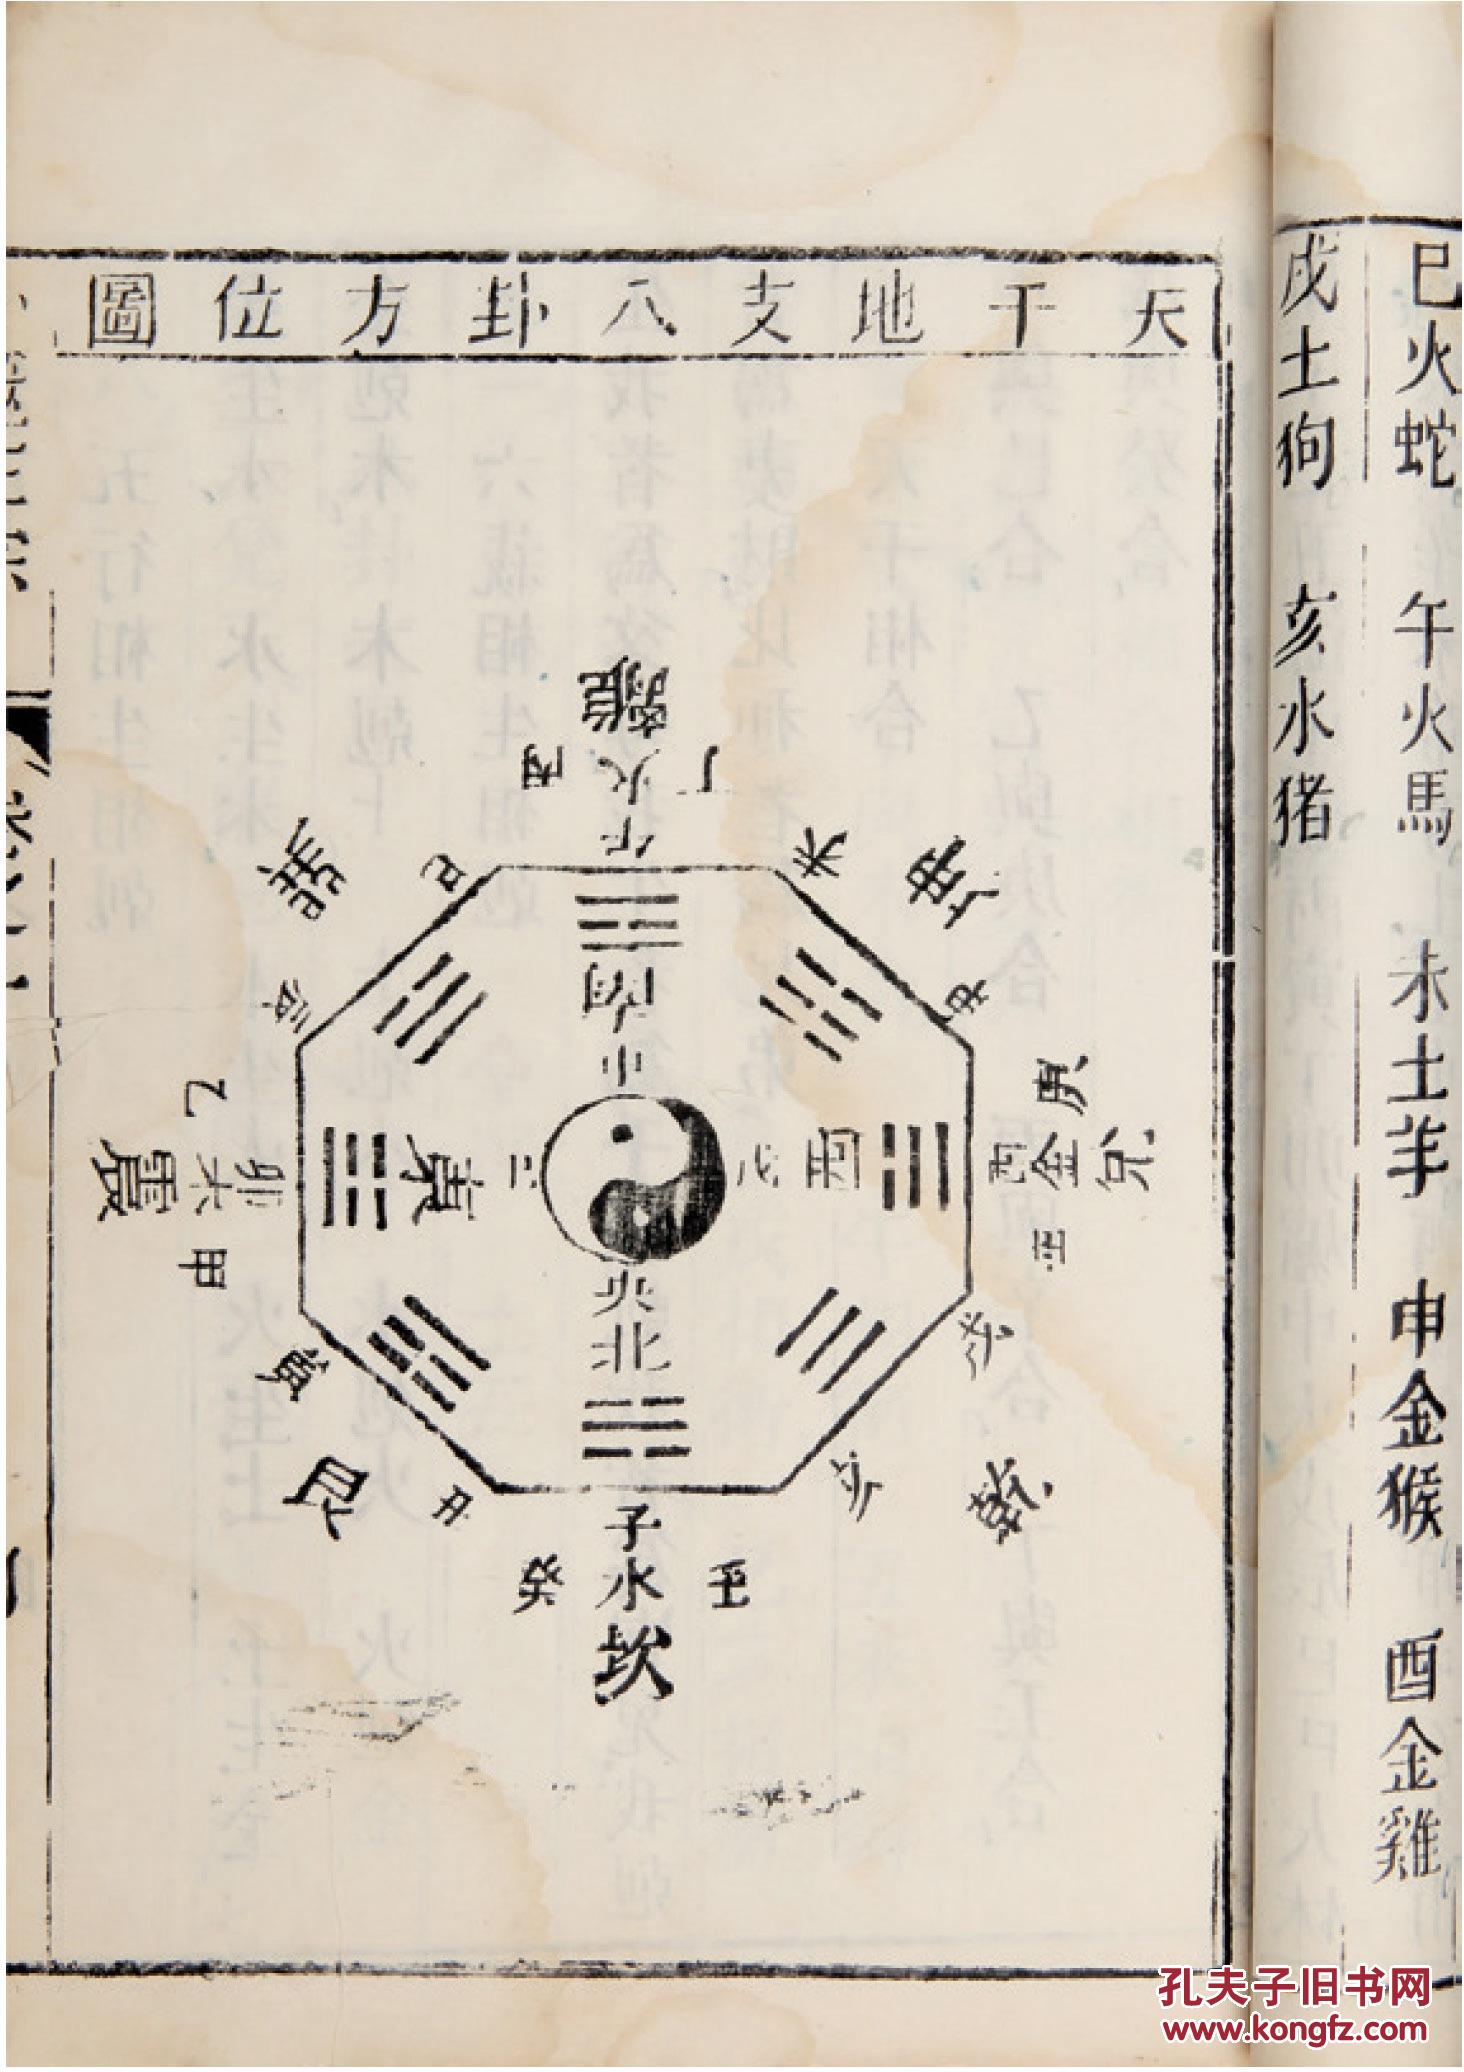 巳火蛇　午火馬　未土羊　申金猴　酉金雞
戌土狗　亥水猪
天干地支八卦方位圖
離
丙　火　丁
午
巽　巳　未　坤
辰　申
南
三
乙　庚
震木卯　東　二　四　西　酉金兌
甲　辛
六
北
寅　戌
艮　丑　亥　乾
子
癸　水　壬
坎
孔夫子旧书网
www.kongfz.com